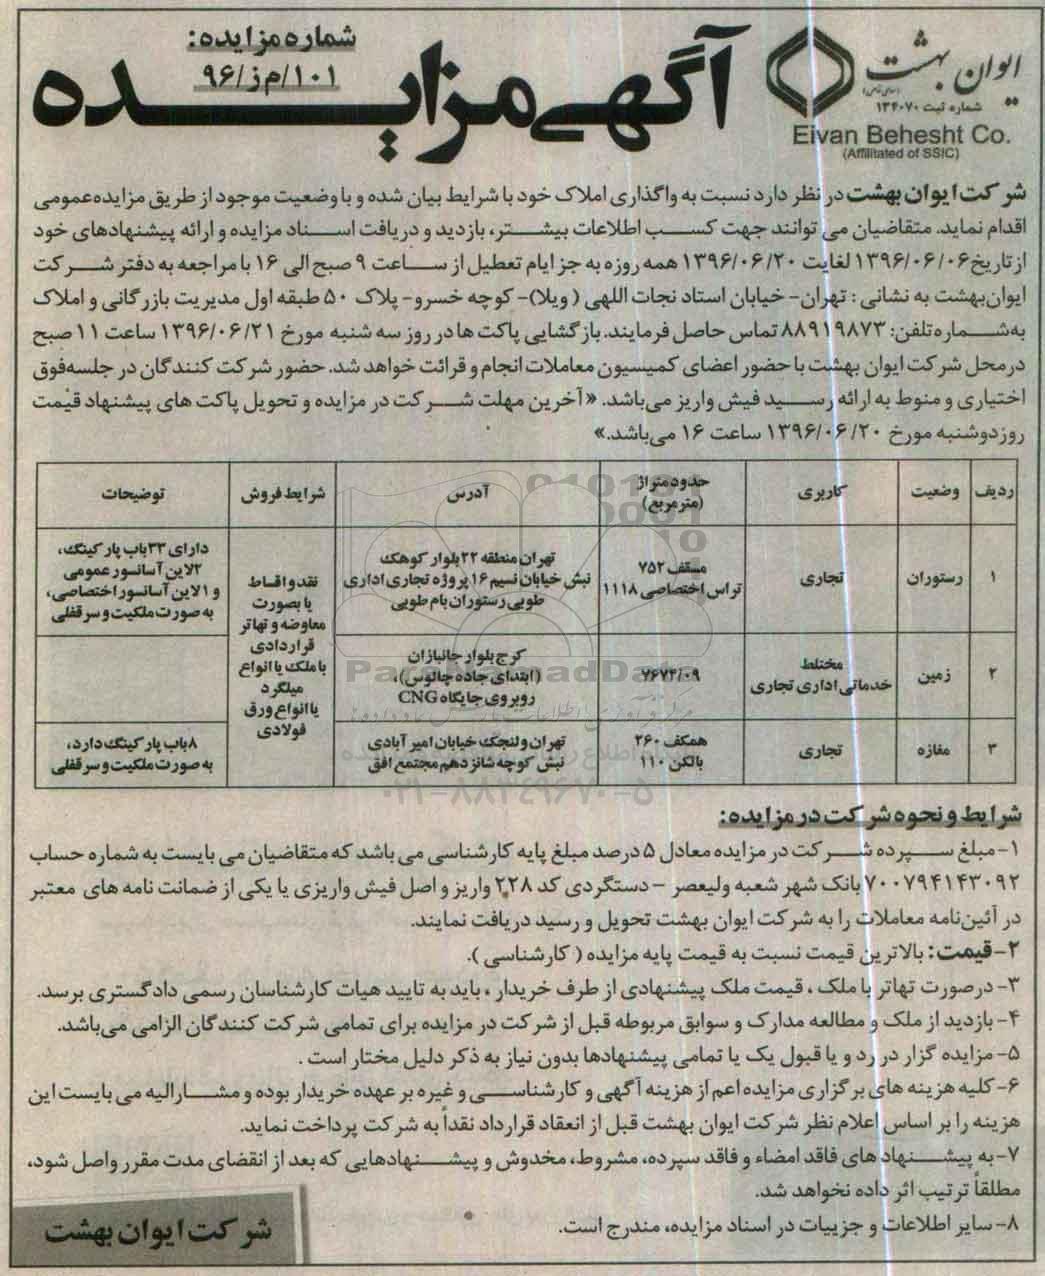 ایوان بهشت
(سهامی خاص)
شماره ثبت ۱۳۴۰۷۰
Eivan Behesht Co.
(Affilitated of SSIC)
آگهی مزایده
شماره مزایده:
۱۰۱/م ز/۹۶
شرکت ایوان بهشت در نظر دارد نسبت به واگذاری املاک خود با شرایط بیان شده و با وضعیت موجود از طریق مزایده عمومی
اقدام نماید. متقاضیان می توانند جهت کسب اطلاعات بیشتر، بازدید و دریافت اسناد مزایده و ارائه پیشنهادهای خود
از تاریخ ۱۳۹۶/۰۶/۰۶ لغایت ۱۳۹۶/۰۶/۲۰ همه روزه به جز ایام تعطیل از ساعت ۹ صبح الی ۱۶ با مراجعه به دفتر شرکت
ایوان‌بهشت به نشانی : تهران- خیابان استاد نجات اللهی ( ویلا)- کوچه خسرو- پلاک ۵۰ طبقه اول مدیریت بازرگانی و املاک
به شماره تلفن: ۸۸۹۱۹۸۷۳ تماس حاصل فرمایند. بازگشایی پاکت ها در روز سه شنبه مورخ ۱۳۹۶/۰۶/۲۱ ساعت ۱۱ صبح
در محل شرکت ایوان بهشت با حضور اعضای کمیسیون معاملات انجام و قرائت خواهد شد. حضور شرکت کنندگان در جلسه فوق
اختیاری و منوط به ارائه رسید فیش واریز می‌باشد. «آخرین مهلت شرکت در مزایده و تحویل پاکت های پیشنهاد قیمت
روز دوشنبه مورخ ۱۳۹۶/۰۶/۲۰ ساعت ۱۶ می‌باشد.»
ردیف وضعیت کاربری حدود متراژ (مترمربع) آدرس شرایط فروش توضیحات
۱ رستوران تجاری مسقف ۷۵۲ تراس اختصاصی ۱۱۱۸ تهران منطقه ۲۲ بلوار کوهک نبش خیابان نسیم ۱۶ پروژه تجاری اداری طوبی رستوران بام طوبی نقد و اقساط یا بصورت معاوضه و تهاتر قراردادی با ملک یا انواع میلگرد یا انواع ورق فولادی دارای ۳۳ باب پارکینگ، ۲ لاین آسانسور عمومی و ۱ لاین آسانسور اختصاصی، به صورت ملکیت و سرقفلی
۲ زمین مختلط خدماتی اداری تجاری ۷۶۷۳/۰۹ کرج بلوار جانبازان (ابتدای جاده چالوس)، روبروی جایگاه CNG
۳ مغازه تجاری همکف ۲۶۰ بالکن ۱۱۰ تهران ولنجک خیابان امیرآبادی نبش کوچه شانزدهم مجتمع افق ۸ باب پارکینگ دارد، به صورت ملکیت و سرقفلی
ParsNamadData
۰۲۱-۸۸۳۴۹۶۷۰-۵
شرایط و نحوه شرکت در مزایده:
۱- مبلغ سپرده شرکت در مزایده معادل ۵ درصد مبلغ پایه کارشناسی می باشد که متقاضیان می بایست به شماره حساب
۷۰۰۷۹۴۱۴۳۰۹۲ بانک شهر شعبه ولیعصر - دستگردی کد ۲۲۸ واریز و اصل فیش واریزی یا یکی از ضمانت نامه های معتبر
در آئین‌نامه معاملات را به شرکت ایوان بهشت تحویل و رسید دریافت نمایند.
۲- قیمت: بالاترین قیمت نسبت به قیمت پایه مزایده ( کارشناسی ).
۳- درصورت تهاتر با ملک ، قیمت ملک پیشنهادی از طرف خریدار ، باید به تایید هیات کارشناسان رسمی دادگستری برسد.
۴- بازدید از ملک و مطالعه مدارک و سوابق مربوطه قبل از شرکت در مزایده برای تمامی شرکت کنندگان الزامی می‌باشد.
۵- مزایده گزار در رد و یا قبول یک یا تمامی پیشنهادها بدون نیاز به ذکر دلیل مختار است .
۶- کلیه هزینه های برگزاری مزایده اعم از هزینه آگهی و کارشناسی و غیره بر عهده خریدار بوده و مشارالیه می بایست این
هزینه را بر اساس اعلام نظر شرکت ایوان بهشت قبل از انعقاد قرارداد نقداً به شرکت پرداخت نماید.
۷- به پیشنهاد های فاقد امضاء و فاقد سپرده، مشروط، مخدوش و پیشنهادهایی که بعد از انقضای مدت مقرر واصل شود،
مطلقاً ترتیب اثر داده نخواهد شد.
۸- سایر اطلاعات و جزییات در اسناد مزایده، مندرج است.
شرکت ایوان بهشت